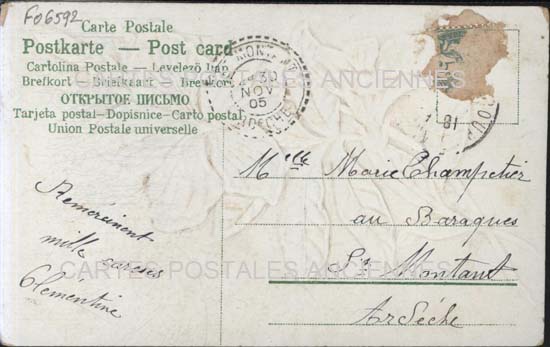 F06592
Carte Postale
Postkarte — Post card
Cartolina Postale — Levelező-Lap
Brefkort - Briefkaart - Brevkort
ОТКРЫТОЕ ПИСЬМО
Tarjeta postal—Dopisnice—Carto postal
Union Postale universelle
30
NOV
05
ARDECHE
18
CARTES POSTALES ANCIENNES
Melle Marie Champetier
au Baraques
St Montant
Ardéche
mille caresses
Clémentine
CARTES POSTALES ANCIENNES